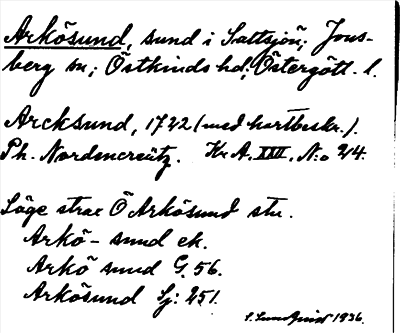 Arkösund, sund i Saltsjön; Jons-
berg sn; Östkinds hd; Östergötl. l.
Arcksund, 1722 (med kartbeskr.).
Ph. Nordencreütz. Kr. A. XXII, N:o 24.
Läge strax Ö Arkösund stn.
Arkö-sund ek.
Arkö sund G. 56.
Arkösund Lj: 251.
1936.